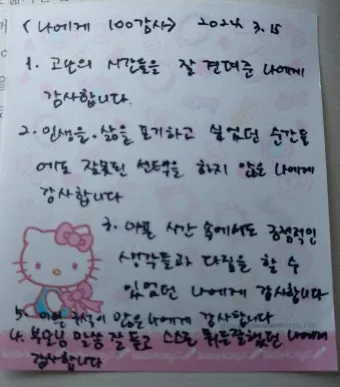 <나에게 100감사> 2024 3.15
1. 고난의 시간들을 잘 견뎌준 나에게
감사합니다.
2. 인생을. 삶을 포기하고 싶었던 순간들
에도 잘못된 선택을 하지 않은 나에게
감사합니다
3. 아픈 시간 속에서도 긍정적인
생각들과 다짐을 할 수
있었던 나에게 감사합니다
5 구석이 많은 나에게 감사합니다
4. 부모님 말씀 잘 듣고 스스로 나에게
감사합니다